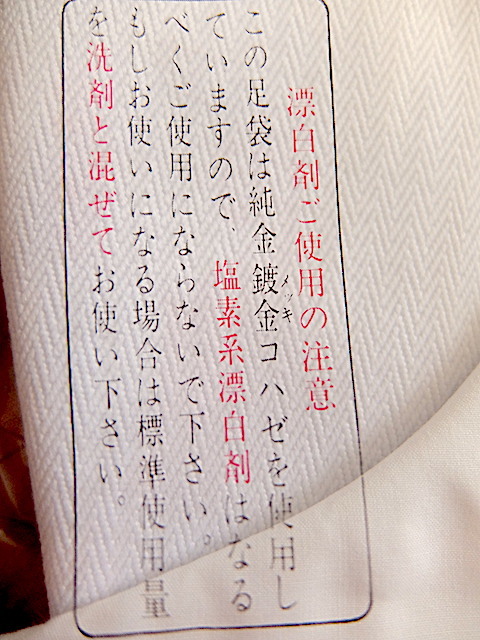 漂白剤ご使用の注意
この足袋は純金鍍金コハゼを使用し
メッキ
ていますので、塩素系漂白剤はなる
べくご使用にならないで下さい。
もしお使いになる場合は標準使用量
を洗剤と混ぜてお使い下さい。